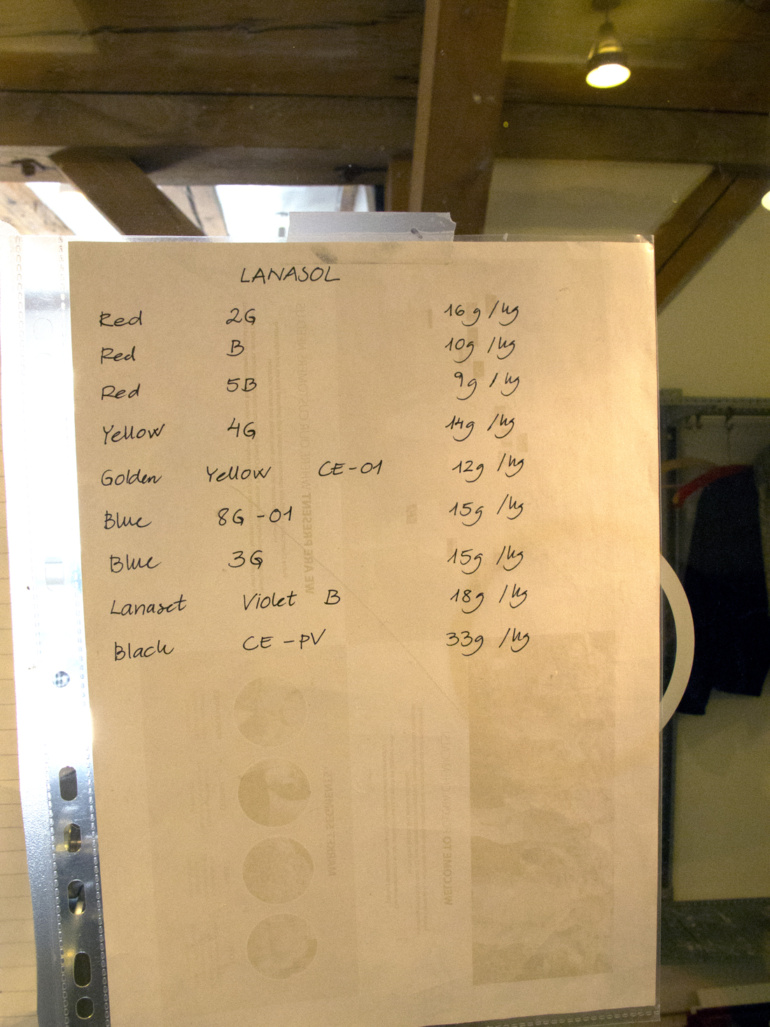 LANASOL
Red 2G 16g /kg
Red B 10g /kg
Red 5B 9g /kg
Yellow 4G 14g /kg
Golden Yellow CE-01 12g /kg
Blue 8G-01 15g /kg
Blue 3G 15g /kg
Lanaset Violet B 18g /kg
Black CE-PV 33g /kg
WE ARE PRESENT
WELCOME TO